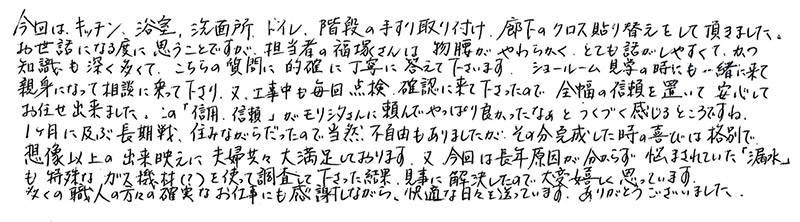 今回は、キッチン、浴室、洗面所、トイレ、階段の手すり取り付け、廊下のクロス貼り替えをして頂きました。
お世話になる度に思うことですが、担当者の福塚さんは物腰がやわらかく、とても話がしやすくて、かつ
知識も深く多くて、こちらの質問に的確に丁寧に答えて下さいます。ショールーム見学の時にも一緒に来て
親身になって相談に乗って下さり、又、工事中も毎回点検、確認に来て下さったので全幅の信頼を置いて安心して
お任せ出来ました。この「信用、信頼」がモリシタさんに頼んでやっぱり良かったなぁとつくづく感じるところですね。
1ヶ月に及ぶ長期戦、住みながらだったので当然、不自由もありましたが、その分完成した時の喜びは格別で、
想像以上の出来映えに夫婦共々大満足しております。又、今回は長年原因が分からず悩まされていた「漏水」
も特殊なガス機材(?)を使って調査して下さった結果、見事に解決したので大変嬉しく思っています。
多くの職人の方々の確実なお仕事にも感謝しながら、快適な日々を送っています。ありがとうございました。